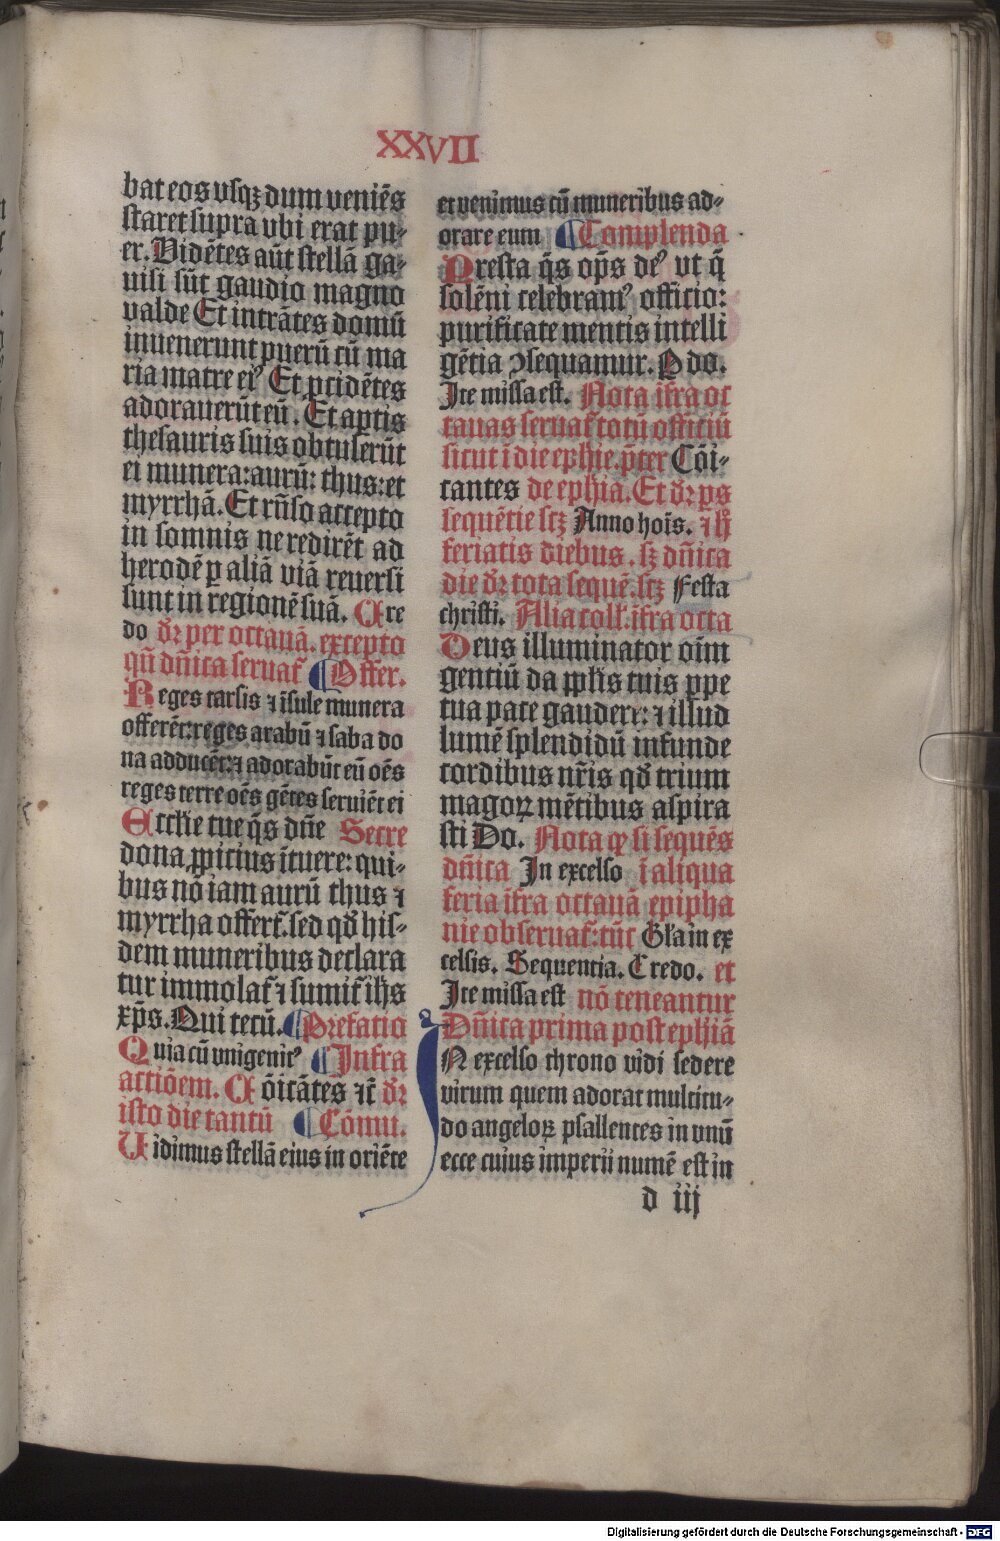 XXVII
bat eos vsqʒ dum veniēs
staret supra vbi erat pu-
er. Vidētes aūt stellā ga-
uisi sūt gaudio magno
valde Et intrātes domū
inuenerunt puerū cū ma
ria matre eiꝰ Et ꝓcidētes
adorauerūt eū. Et aꝑtis
thesauris suis obtulerūt
ei munera: aurū: thus: et
myrrhā. Et rñso accepto
in somnis ne redirēt ad
herodē ꝑ aliā viā reuersi
sunt in regionē suā. Cre
do dꝛ per octauā. excepto
qñ dñica seruat̄ Offer.
Reges tarsis ⁊ īsule munera
offerēt: reges arabū ⁊ saba do
na adducēt: ⁊ adorabūt eū oēs
reges terre oēs gētes seruiēt ei
Ecclie tue q̄s dñe Secre
dona, ꝓpicius ītuere: qui-
bus nō iam aurū thus ⁊
myrrha offert̄. sed qđ his-
dem muneribus declara
tur immolat̄ ⁊ sumit̄ ihs
xp̄s. Qui tecū. Prefatio
Quia cū vnigenitꝰ Infra
actiōem. Cōicātes ⁊c̄ dꝛ
isto die tantū Cōmu.
Vidimus stellā eius in oriēte
et venimus cū muneribus ad-
orare eum Complenda
Presta q̄s op̄s deꝰ vt q̄
solēni celebramꝰ officio:
purificate mentis intelli
gētia ꝯsequamur. P do.
Ite missa est. Nota īfra oc
tauas seruat̄ totū officiū
sicut ī die ep̄hie. p̄ter Cōi-
cantes de ep̄hia. Et dꝛ ꝓs
sequētie scʒ Anno hoīs. ⁊ ħ
feriatis diebus. sʒ dñica
die dꝛ tota sequē. scʒ Festa
christi. Alia coll. īfra octa
Deus illuminator oīm
gentiū da pplis tuis ꝑpe
tua pace gaudere: ⁊ illud
lumē splendidū infunde
cordibus nr̄is qđ trium
magoꝝ mētibus aspira
sti Do. Nota ꝙ si sequēs
dñica In excelso ī aliqua
feria īfra octauā epipha
nie obseruat̄: tūc Gl̄a in ex
celsis. Sequentia. Credo. et
Ite missa est nō teneantur
Dñica prima post ep̄hiā
IN excelso throno vidi sedere
virum quem adorat multitu-
do angeloꝝ psallentes in vnū
ecce cuius imperii numē est in
d iij
Digitalisierung gefördert durch die Deutsche Forschungsgemeinschaft - DFG